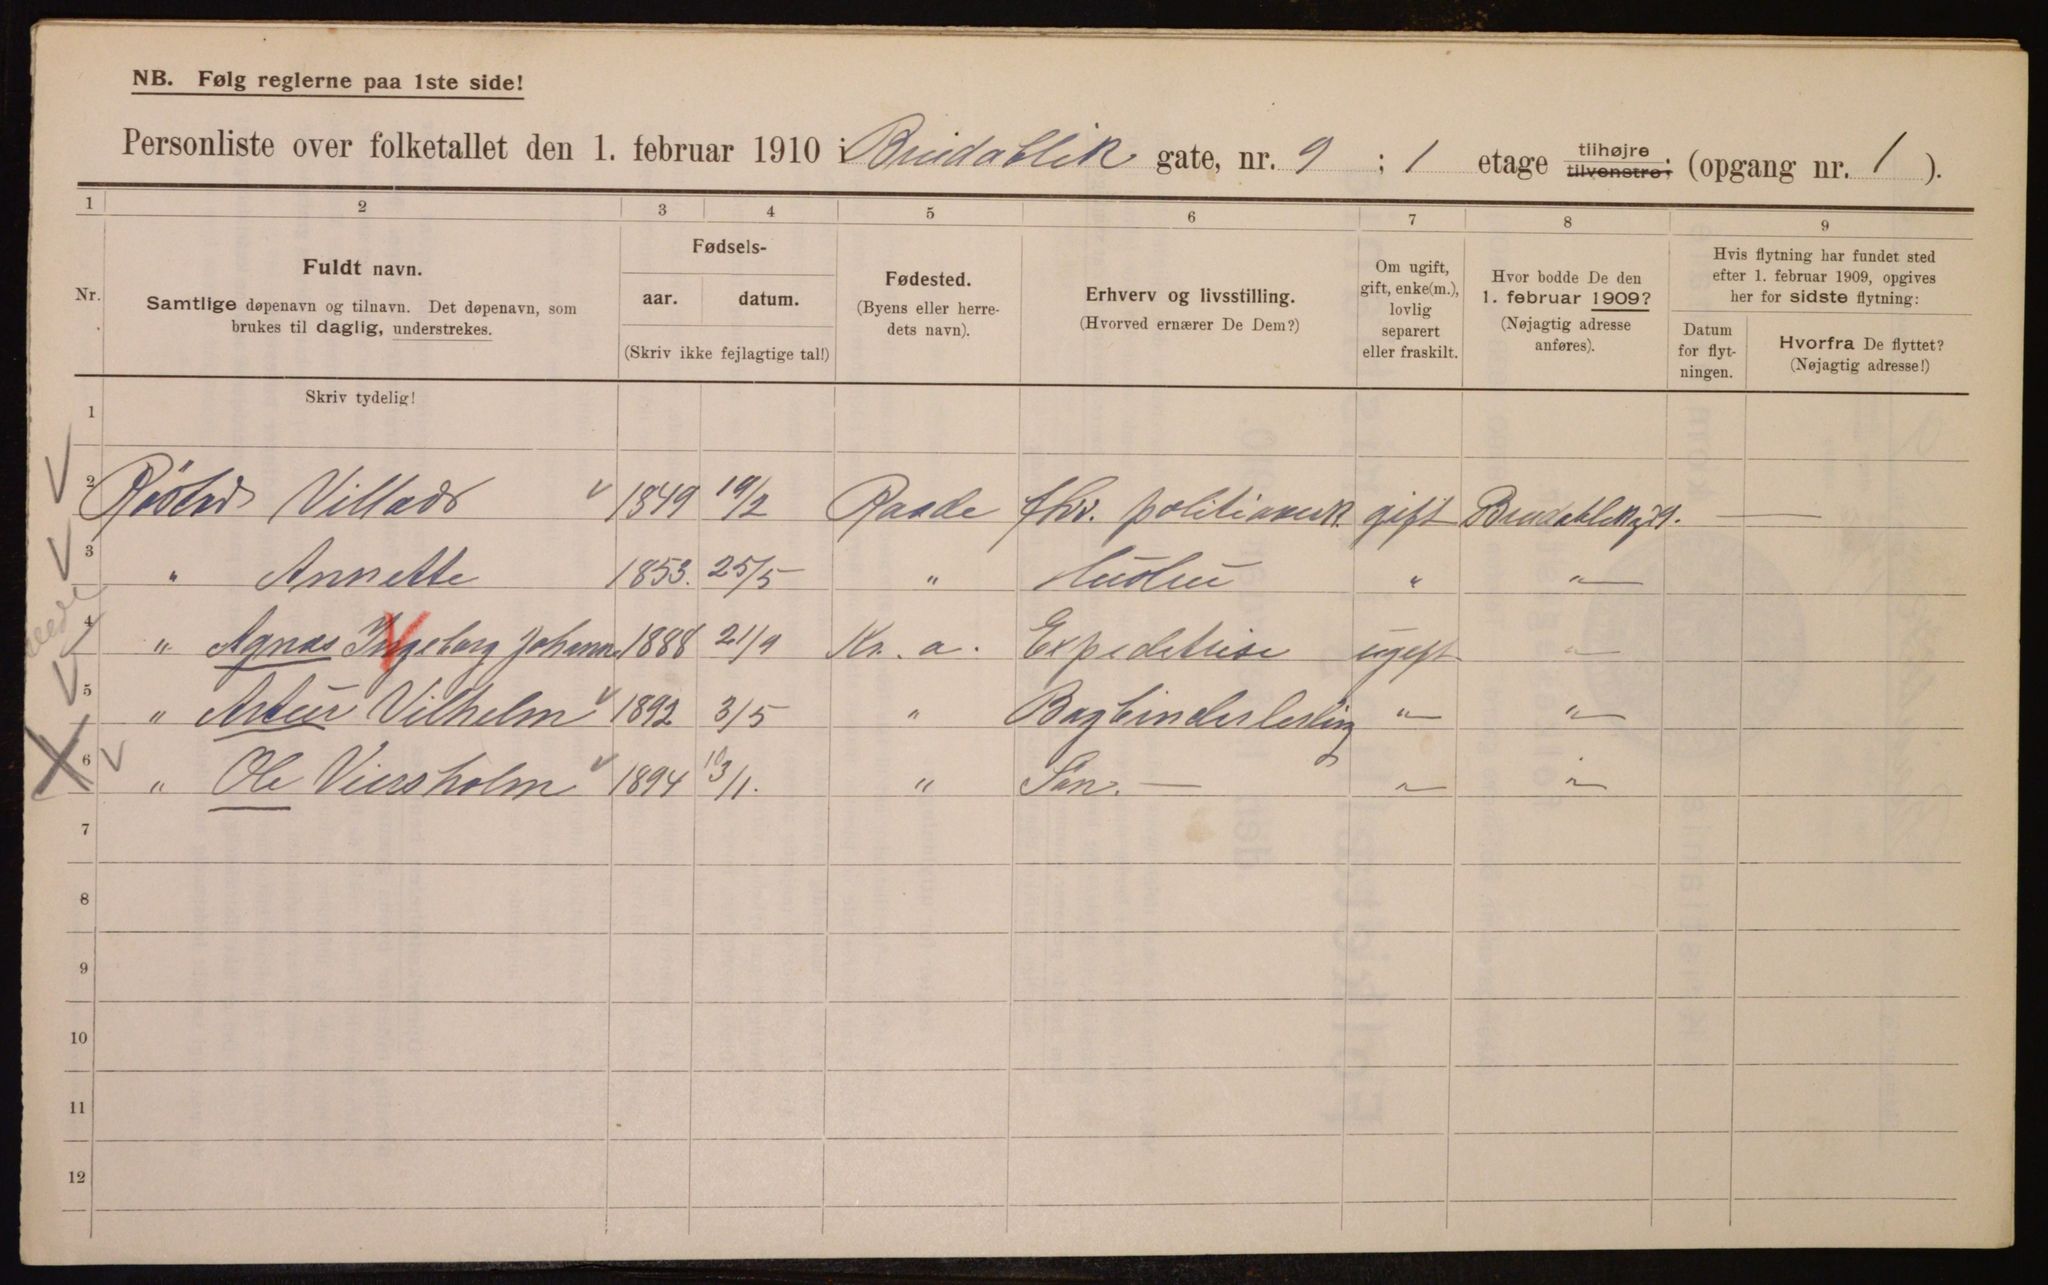 NB. Følg reglerne paa 1ste side!
Personliste over folketallet den 1. februar 1910 i Breidablik gate, nr. 9 ; 1 etage tilhøjre tilvenstre; (opgang nr. 1 ).
1 2 3 4 5 6 7 8 9
Nr.
Fuldt navn.
Samtlige døpenavn og tilnavn. Det døpenavn, som
brukes til daglig, understrekes.
Fødsels-
aar. datum.
(Skriv ikke fejlagtige tal!)
Fødested.
(Byens eller herre-
dets navn).
Erhverv og livsstilling.
(Hvorved ernærer De Dem?)
Om ugift,
gift, enke(m.),
lovlig
separert
eller fraskilt.
Hvor bodde De den
1. februar 1909?
(Nøjagtig adresse
anføres).
Hvis flytning har fundet sted
efter 1. februar 1909, opgives
her for sidste flytning:
Datum
for flyt-
ningen.
Hvorfra De flyttet?
(Nøjagtig adresse!)
Skriv tydelig!
1
2 Røstad Villads 1849 19/2 Raade fhv. gift Breidablikg 9. —
3 " Annette 1853. 25/5 " Hustru " "
4 " Agnes Ingeborg Johanne 1888 21/9 Kr. a. Expeditrise ugift "
5 " Artur Vilhelm 1892 3/5 " Bogbinderlerling " "
6 " Ole Viersholm 1894 /1. " Søn. — " "
7
8
9
10
11
12